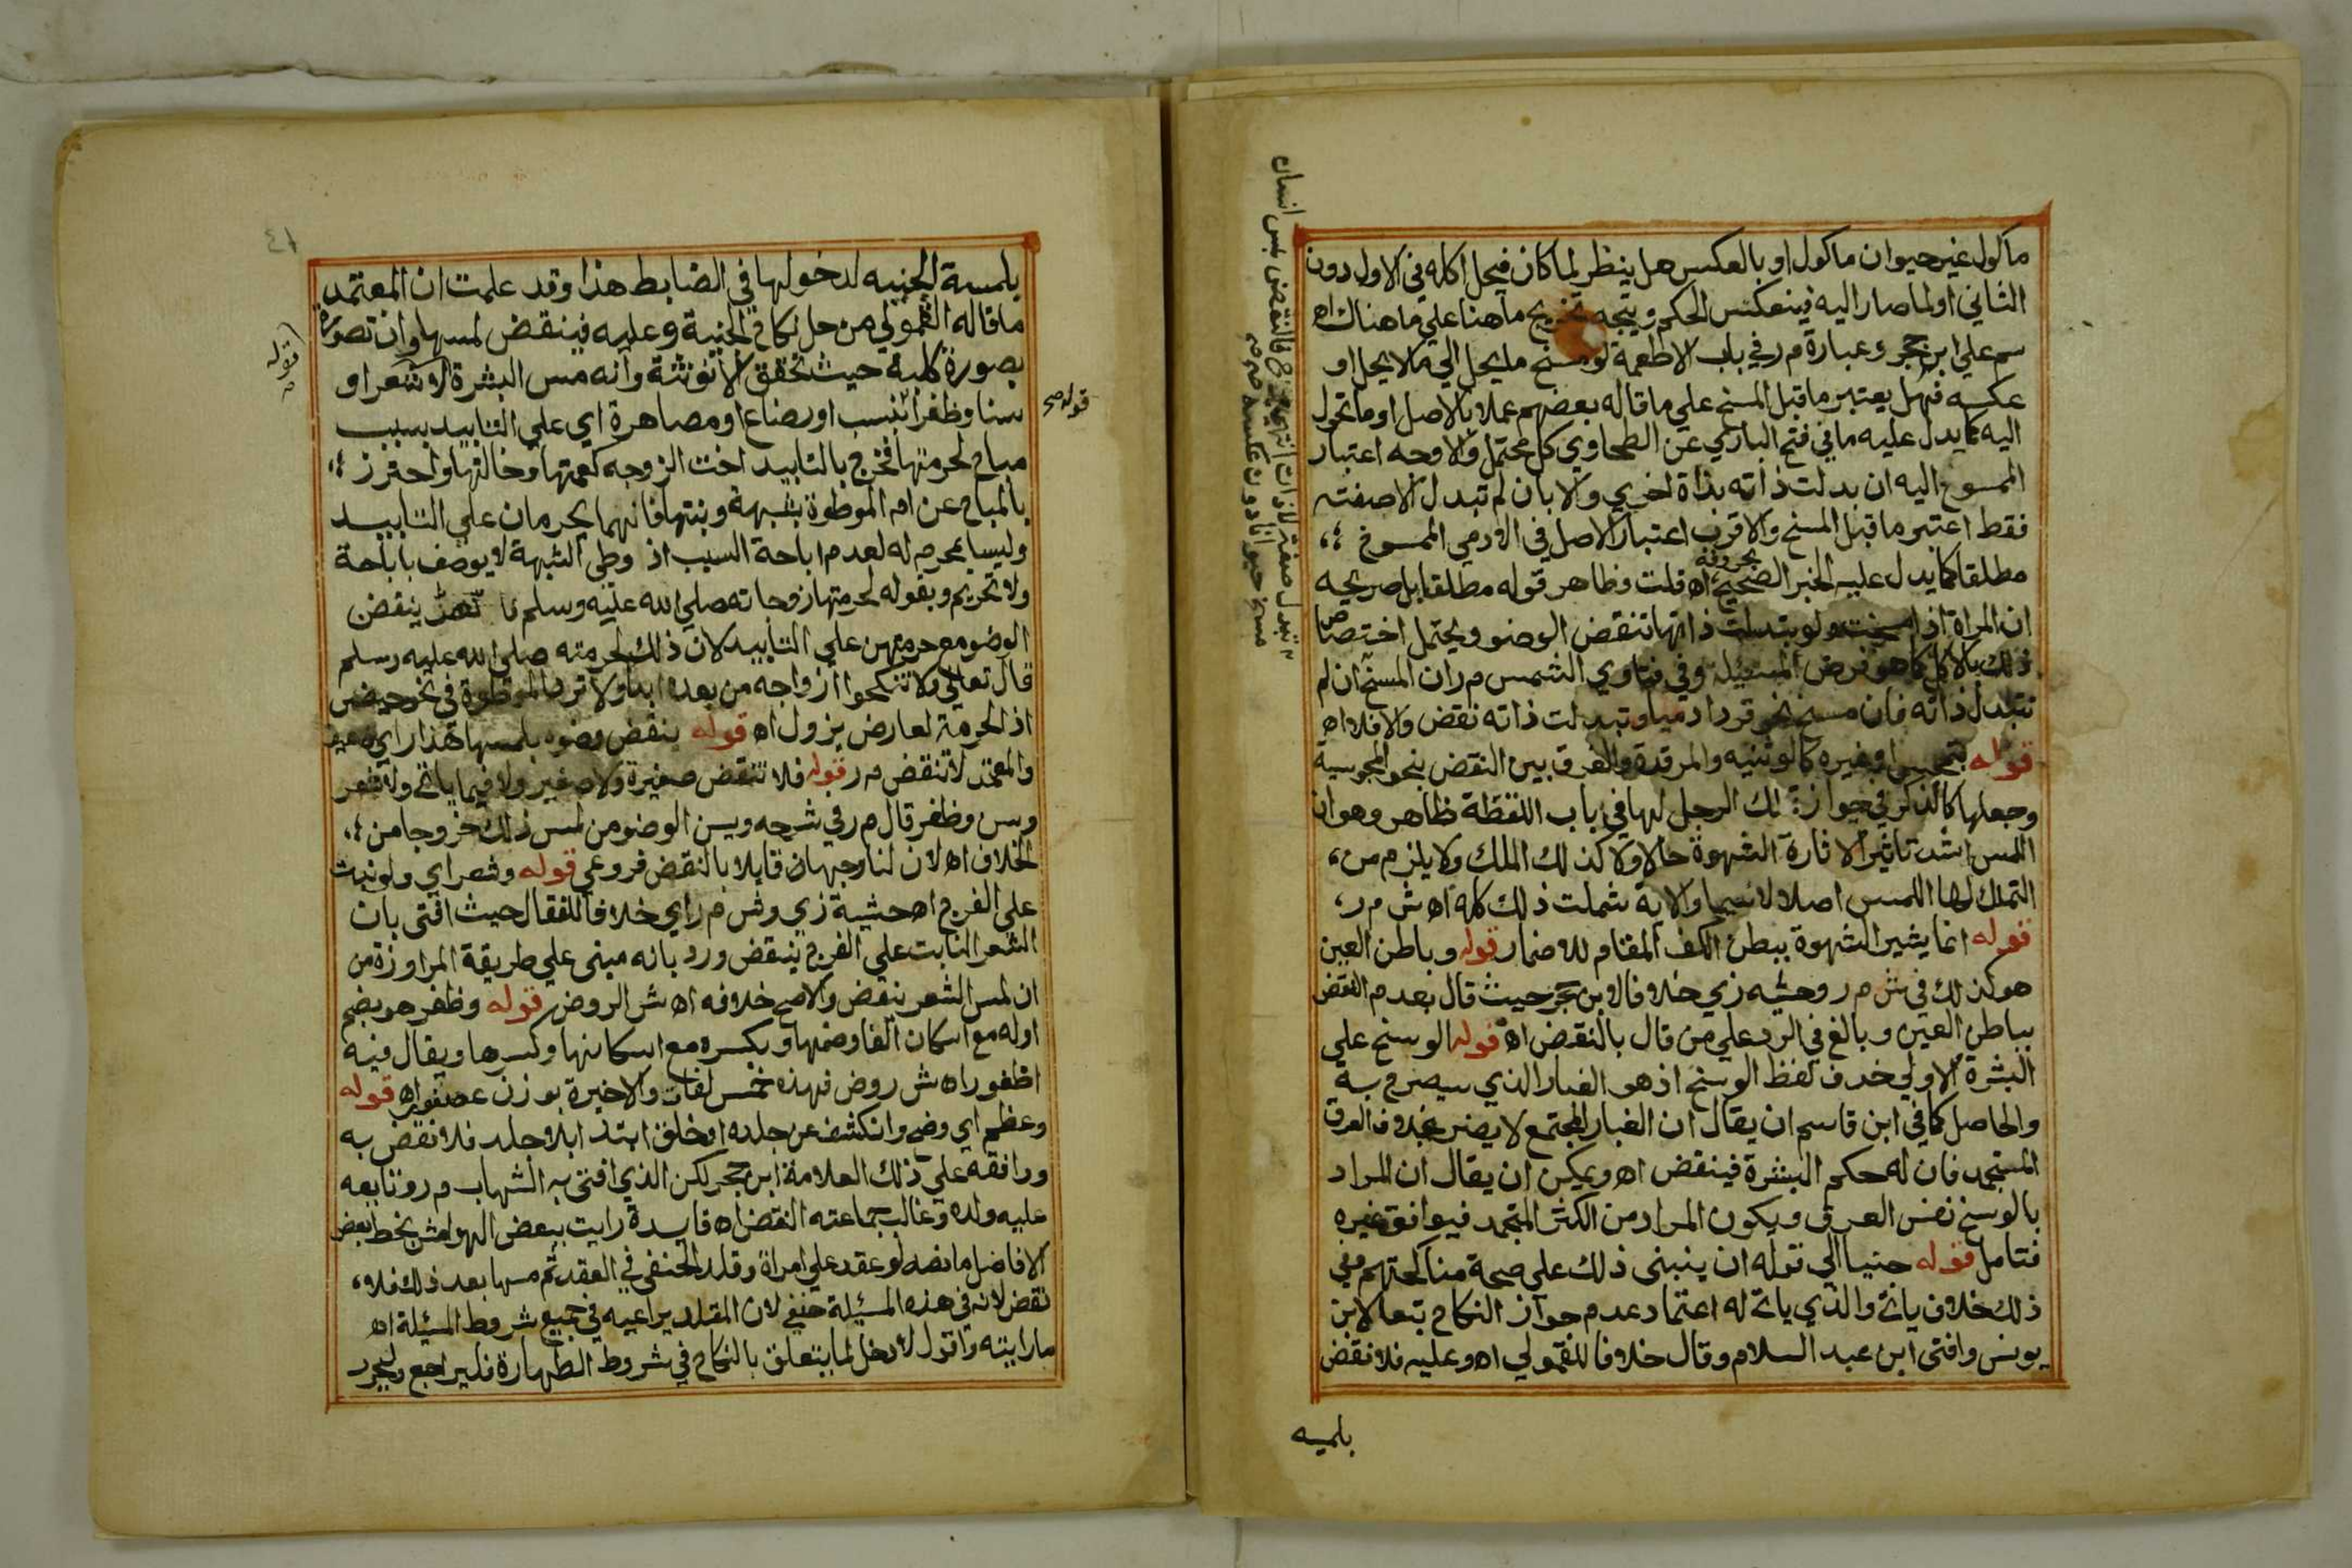 ماكول غير حيوان ماكول او بالعكس هل ينظر لما كان فيحل اكله في الاول دون
الثاني او لما صار اليه فينعكس الحكم ويتجه تخريج ما هنا علي ما هناك اه
سم علي ابن حجر وعبارة م ر في باب الاطعمة لو مسخ ما يحل الي ما لا يحل او
عكسه فهل يعتبر ما قبل المسخ علي ما قاله بعضهم عملا بالاصل او ما تحول
اليه كما يدل عليه ما في فتح الباري عن الطحاوي كل محتمل والاوجه اعتبار
الممسوخ اليه ان بدلت ذاته بذاة اخري والا بان لم تبدل الا صفته
فقط اعتبر ما قبل المسخ والاقرب اعتبار الاصل في الادمي الممسوخ
مطلقا كما يدل عليه الخبر الصحيح اه بحروفه قلت وظاهر قوله مطلقا بل صريحه
ان المراة اذا مسخت ولو بتبدلت ذاتها تنقض الوضو ويحتمل اختصاص
ذلك بالاكل كما هو فرض المسئيلة وفي فتاوي الشمس م ر ان المسخ ان لم
تتبدل ذاته فان مسخ نحو قرد ادميا وتبدلت ذاته نقض والا فلا اه
قوله بتمجس او غيره كالوثنيه والمرتدة والفرق بين النقض بنحو المجوسية
وجعلها كالذكر في جواز تملك الرجل لها في باب اللقطة ظاهر وهو ان
اللمس اشد تاثيرا لاثارة الشهوة حالا ولا كذلك الملك ولا يلزم من
التملك لها اللمس اصلا لا سيما والاية شملت ذلك كله اه ش م ر
قوله انما يشير الشهوة ببطن الكف المقام للاضمار قوله وباطن العين
هو كذلك في ش م ر وحشيه زي خلافا لابن حجر حيث قال بعدم النقض
بباطن العين وبالغ في الرد علي من قال بالنقض اه قوله الوسخ علي
البشرة الاولي حذف لفظ الوسخ اذ هو الغبار الذي سيصرح به
والحاصل كما في ابن قاسم ان يقال ان الغبار المجتمع لا يضر بخلاف العرق
المستجمد فان له حكم البشرة فينقض اه ويمكن ان يقال ان المراد
بالوسخ نفس العرق ويكون المراد من الكثر المتجمد فيوافق غيره
فتامل قوله جنيا الي قوله ان ينبني ذلك علي صحة مناكحتهم وفي
ذلك خلاف ياتي والذي ياتي له اعتماد عدم جواز النكاح تبعا لابن
يونس وافتى ابن عبد السلام وقال خلافا للقمولي اه وعليه فلا نقض
بلمسه
بلمسة الجنيه لدخولها في الضابط هذا وقد علمت ان المعتمد
ما قاله القمولي من حل نكاح الجنية وعليه فينقض لمسها وان تصورة
بصورة كلبة حيث تحقق الانوثة وانه مس البشرة لا شعرا او
سنا وظفرا بنسب او رضاع او مصاهرة اي علي التابيد بسبب
مباح لحرمتها فخرج بالتابيد اخت الزوجه كعمتها وخالتها واحترز
بالمباح عن ام الموطوة بشبهة وبنتها فانهما يحرمان علي التابيد
وليسا بمحرم له لعدم اباحة السبب اذ وطي الشبهة لا يوصف باباحة
ولا تحريم وبقوله لحرمتها زوجاته صلي الله عليه وسلم فا نهن ينقض
الوضو مع حرمتهن علي التابيد لان ذلك لحرمته صلي الله عليه وسلم
قال تعالي ولا تنكحوا ازواجه من بعده ابدا ولا ترد الموطوة في نحو حيض
اذ الحرمة لعارض يزول اه قوله ينقض وضوه بلمسها هذا راي
والمعتمد لا تنقض م ر قوله فلا تنقض صغيرة ولا صغير ولا فيما ياتي ولا شعر
وسن وظفر قال م ر في شرحه ويسن الوضو من لمس ذلك خروجا من
الخلاف اه لان لنا وجها قايلا بالنقض فروعي قوله وشعر اي ولو نبت
علي الفرج اه حشية زي وش م ر اي خلافا للقفال حيث افتى بان
الشعر النابت علي الفرج ينقض ورد بانه مبنى علي طريقة المراوزة من
ان لمس الشعر ينقض والاصح خلافه اه ش الروض قوله وظفر هو بضم
اوله مع اسكان الفا وضمها وبكسره مع اسكانها وكسرها ويقال فيه
اظفور اه ش روض فهذه خمس لغات والاخيرة بوزن عصفور اه قوله
وعظم اي وضح وانكشف عن جلده او خلق ابتدا بلا جلد فلا نقض به
ورافقه علي ذلك العلامة ابن حجر لكن الذي افتي به الشهاب م ر وتابعه
عليه ولده وغالب جماعته النقض اه فايدة رايت ببعض الهوامش بخط بعض
الافاضل ما نصه لو عقد علي امراة وقلد الحنفي في العقد ثم مسها بعد ذلك فلا
نقض لانه في هذه المسئيلة حنفي لان المقلد يراعيه في جميع شروط المسئيلة اه
ما رايته واقول لا دخل لما يتعلق بالنكاح في شروط الطهارة فليراجع وليحرر
قوله صح
قوله